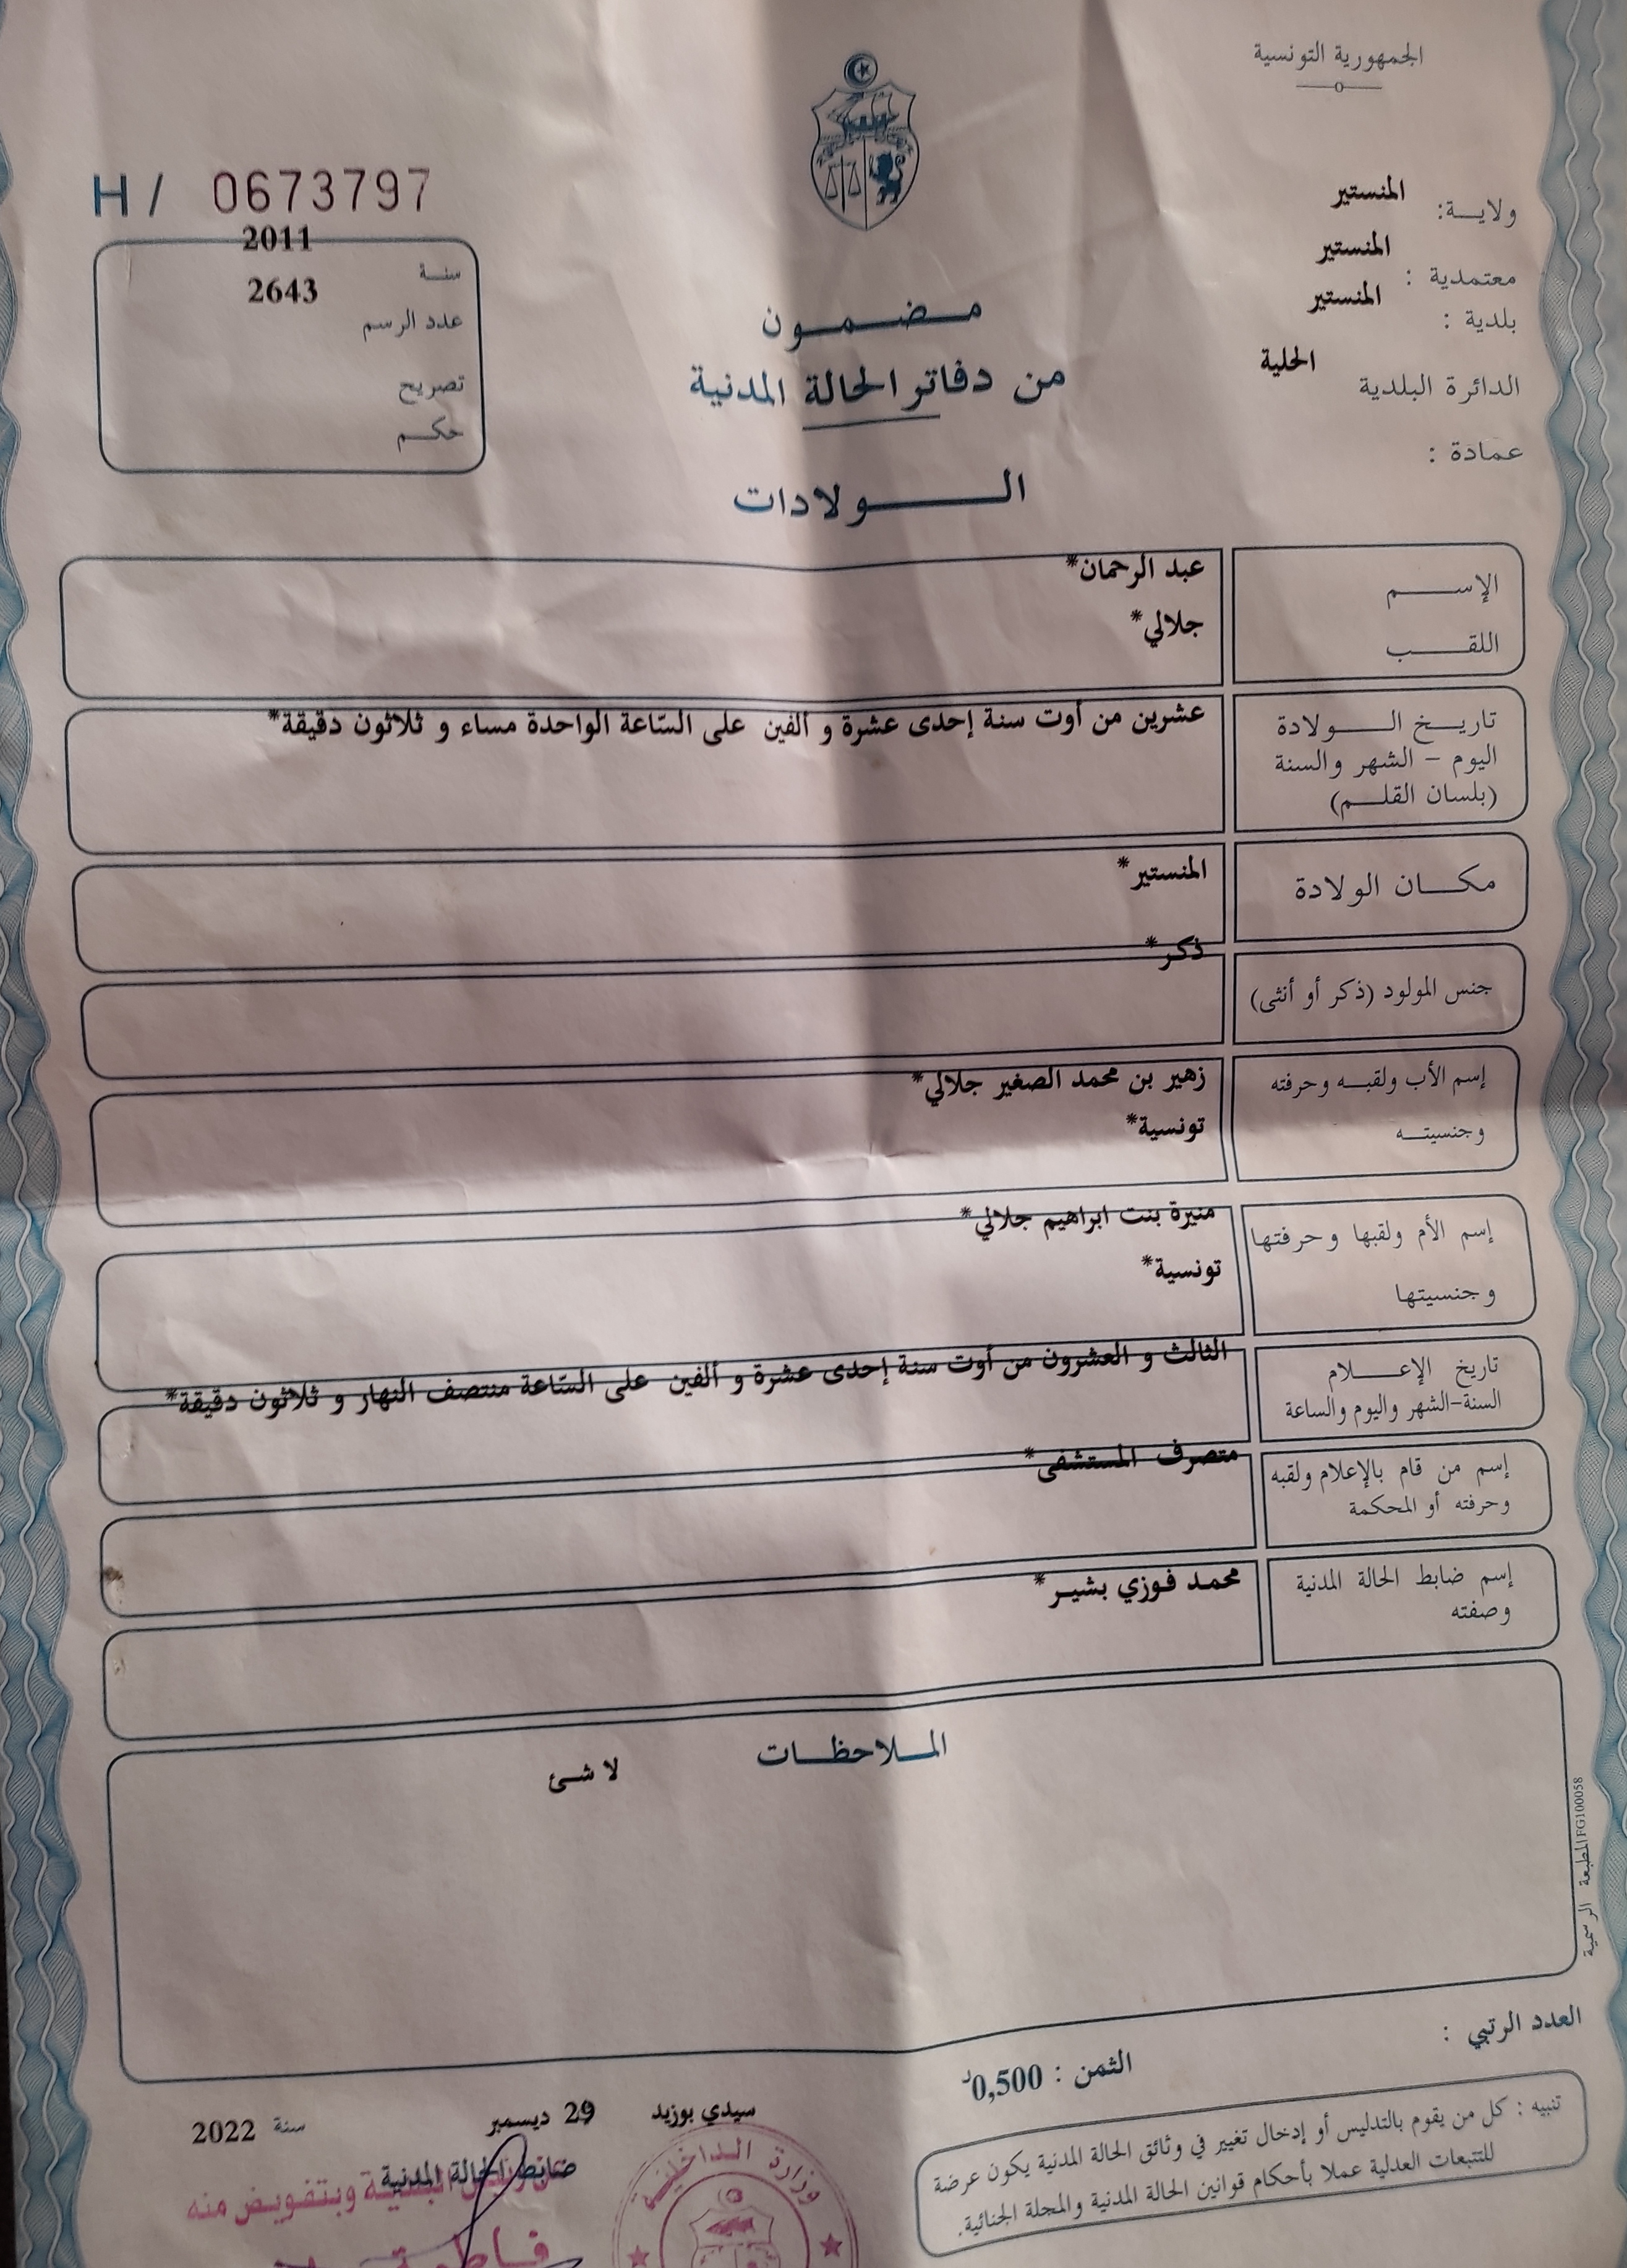 الجمهورية التونسية
ولايـــة: المنستير
معتمدية : المنستير
بلدية : المنستير
الدائرة البلدية الحلية
عمادة :
H / 0673797
سنـة 2011
عدد الرسم 2643
تصريح
حكـم
مـضـمـون
من دفاتر الحالة المدنية
الـولادات
الإســـم عبد الرحمان*
اللقـــب جلالي*
تاريـخ الـــولادة عشرين من أوت سنة إحدى عشرة و ألفين على السّاعة الواحدة مساء و ثلاثون دقيقة*
اليوم – الشهر والسنة
(بلسان القلـم)
مكـــان الولادة المنستير*
جنس المولود (ذكر أو أنثى) ذكر*
إسم الأب ولقبـه وحرفته زهير بن محمد الصغير جلالي*
وجنسيتـه تونسية*
إسم الأم ولقبها وحرفتها منيرة بنت ابراهيم جلالي*
وجنسيتها تونسية*
تاريخ الإعـــلام الثالث و العشرون من أوت سنة إحدى عشرة و ألفين على السّاعة منتصف النهار و ثلاثون دقيقة*
السنة-الشهر واليوم والساعة
إسم من قام بالإعلام ولقبه متصرف المستشفى*
وحرفته أو المحكمة
إسم ضابط الحالة المدنية محمد فوزي بشير*
وصفته
المـلاحظـات
لا شئ
المطبعة الرسمية FG100058
العدد الرتبي :
الثمن : 0,500د
تنبيه : كل من يقوم بالتدليس أو إدخال تغيير في وثائق الحالة المدنية يكون عرضة
للتتبعات العدلية عملا بأحكام قوانين الحالة المدنية والمجلة الجنائية.
سيدي بوزيد 29 ديسمبر سنة 2022
ضابط الحالة المدنية
وبتفويض منه
وزارة الداخلية